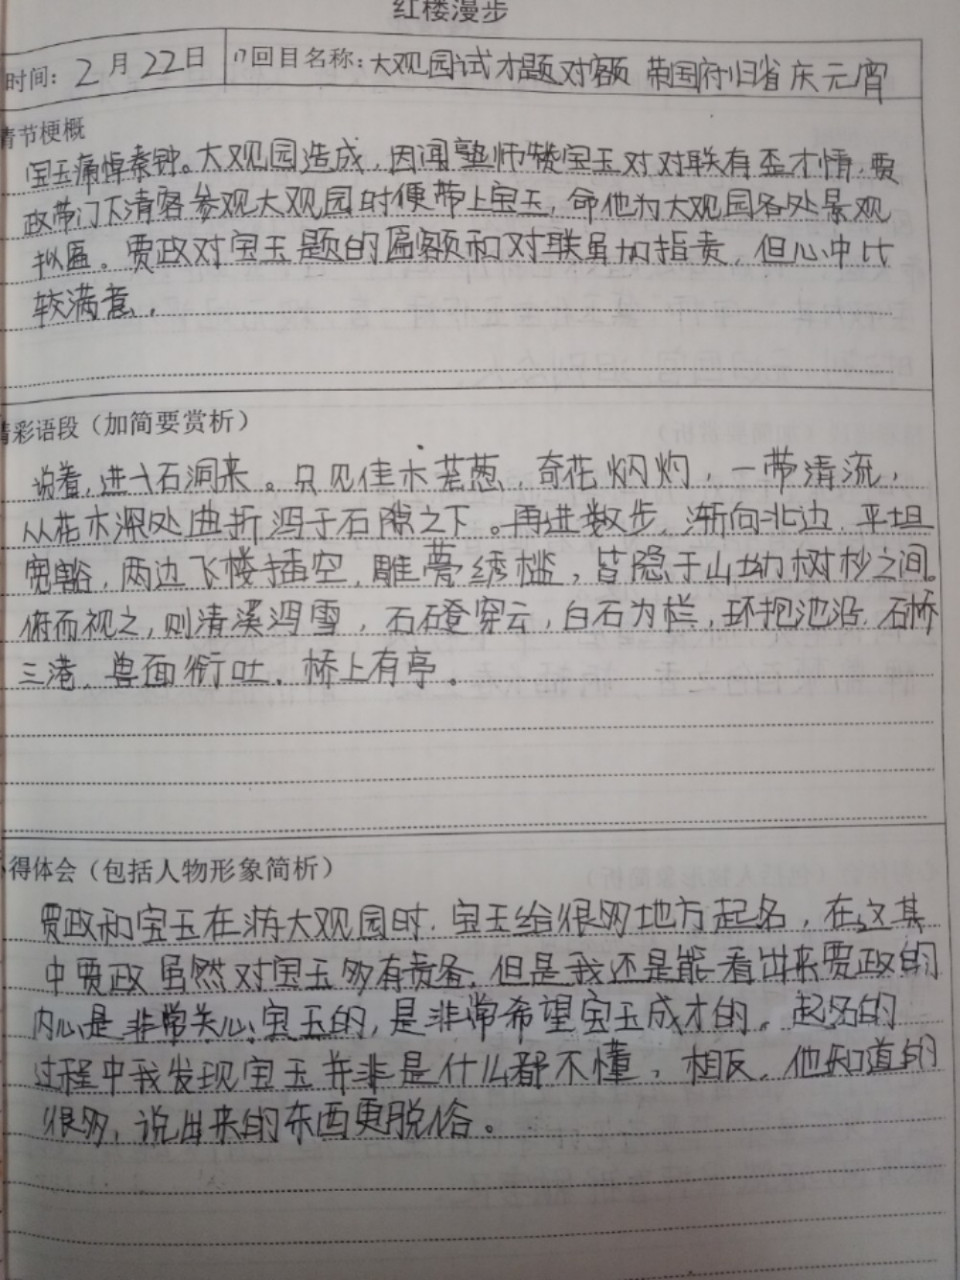 红楼漫步
时间：2月22日 17回目名称：大观园试才题对额 荣国府归省庆元宵
情节梗概
宝玉痛悼秦钟。大观园造成，因闻塾师赞宝玉对对联有歪才情，贾
政带门下清客参观大观园时便带上宝玉，命他为大观园各处景观
拟匾。贾政对宝玉题的匾额和对联虽加指责，但心中比
较满意。
精彩语段（加简要赏析）
说着，进入石洞来。只见佳木茏葱，奇花炳灼，一带清流，
从花木深处曲折泻于石隙之下。再进数步，渐向北边，平坦
宽豁，两边飞楼插空，雕甍绣槛，皆隐于山坳树杪之间。
俯而视之，则清溪泻雪，石磴穿云，白石为栏，环抱池沿，石桥
三港，兽面衔吐。桥上有亭。
心得体会（包括人物形象简析）
贾政和宝玉在游大观园时，宝玉给很多地方起名，在这其
中贾政虽然对宝玉多有责备，但是我还是能看出来贾政的
内心是非常关心宝玉的，是非常希望宝玉成才的。起名的
过程中我发现宝玉并非是什么都不懂，相反，他知道的
很多，说出来的东西更脱俗。